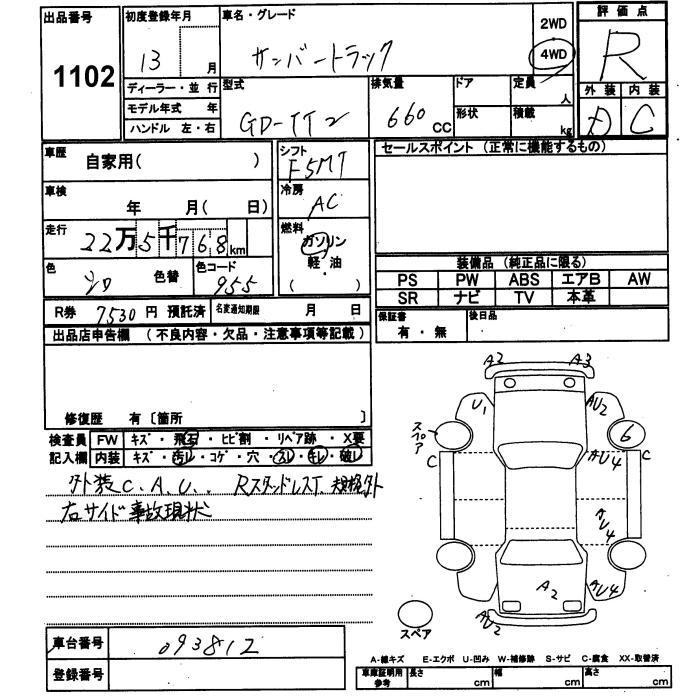 出品番号
1102
初度登録年月
13 月
車名・グレード
サンバートラック
2WD
4WD
評価点
R
外装 内装
D C
ディーラー・並行
モデル年式 年
ハンドル 左・右
型式
GD-TT2
排気量
660 CC
ドア
形状
定員 人
積載 kg
車歴
自家用( )
シフト
F5MT
セールスポイント (正常に機能するもの)
車検
年 月( 日)
冷房
AC
走行
22万5千768km
燃料
ガソリン
軽・油
( )
色
シロ
色替
色コード
955
装備品 (純正品に限る)
PS PW ABS エアB AW
SR ナビ TV 本革
R券 7530 円 預託済
名変通知期限 月 日
保証書
有・無
後日品
出品店申告欄 (不良内容・欠品・注意事項等記載)
修復歴 有〔箇所 〕
検査員 FW キズ・飛石・ヒビ割・リペア跡・X要
記入欄 内装 キズ・汚レ・コゲ・穴・スレ・キレ・破レ
外装C.A.U. RスタッドレスT 規格外
右サイド事故現状
A2 A3
U1 AU2
スペア
6
C AU4 C
AU4
A2 AU4
AU2
スペア
車台番号
093812
登録番号
A-線キズ E-エクボ U-凹み W-補修跡 S-サビ C-腐食 XX-取替済
車庫証明用
参考
長さ cm
幅 cm
高さ cm